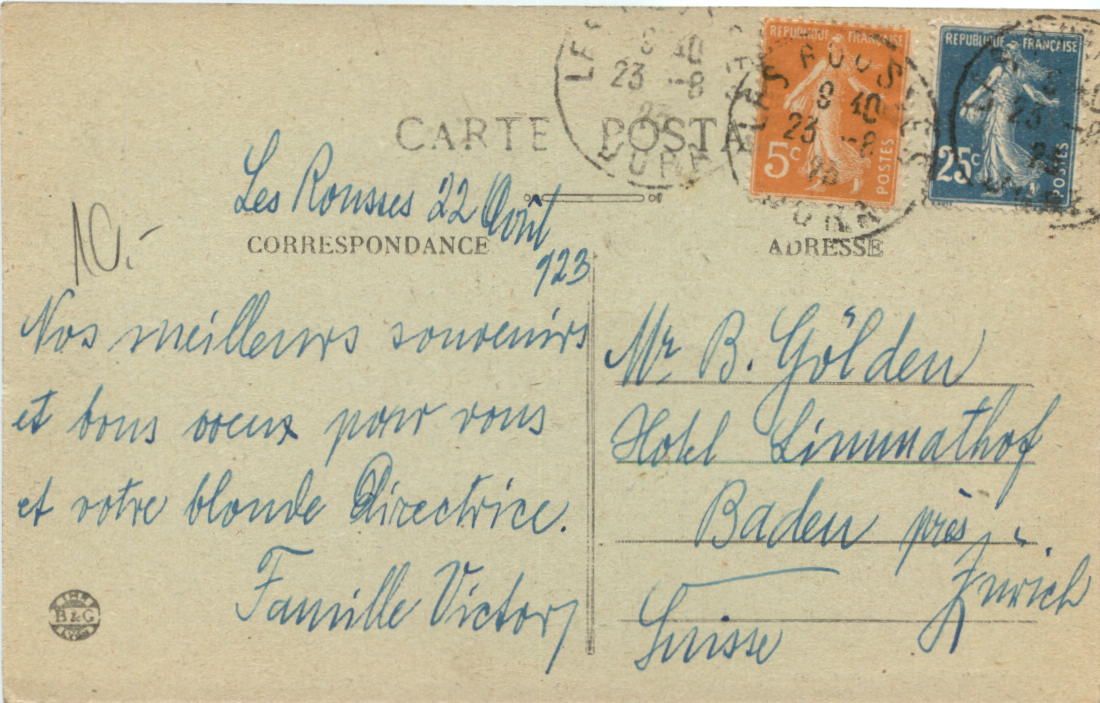 CARTE POSTA
Les Rousses 22 Août
923
CORRESPONDANCE
10.-
Nos meilleurs souvenirs
et bons voeux pour vous
et votre blonde Directrice.
Famille Victory
B & G
ADRESSE
Mr B. Gölden
Hotel Limmathof
Baden près
Zürich
Suisse
REPUBLIQUE FRANÇAISE
5c
POSTES
REPUBLIQUE FRANÇAISE
25c
POSTES
LES ROUSSES
8 40
23 -8
JURA